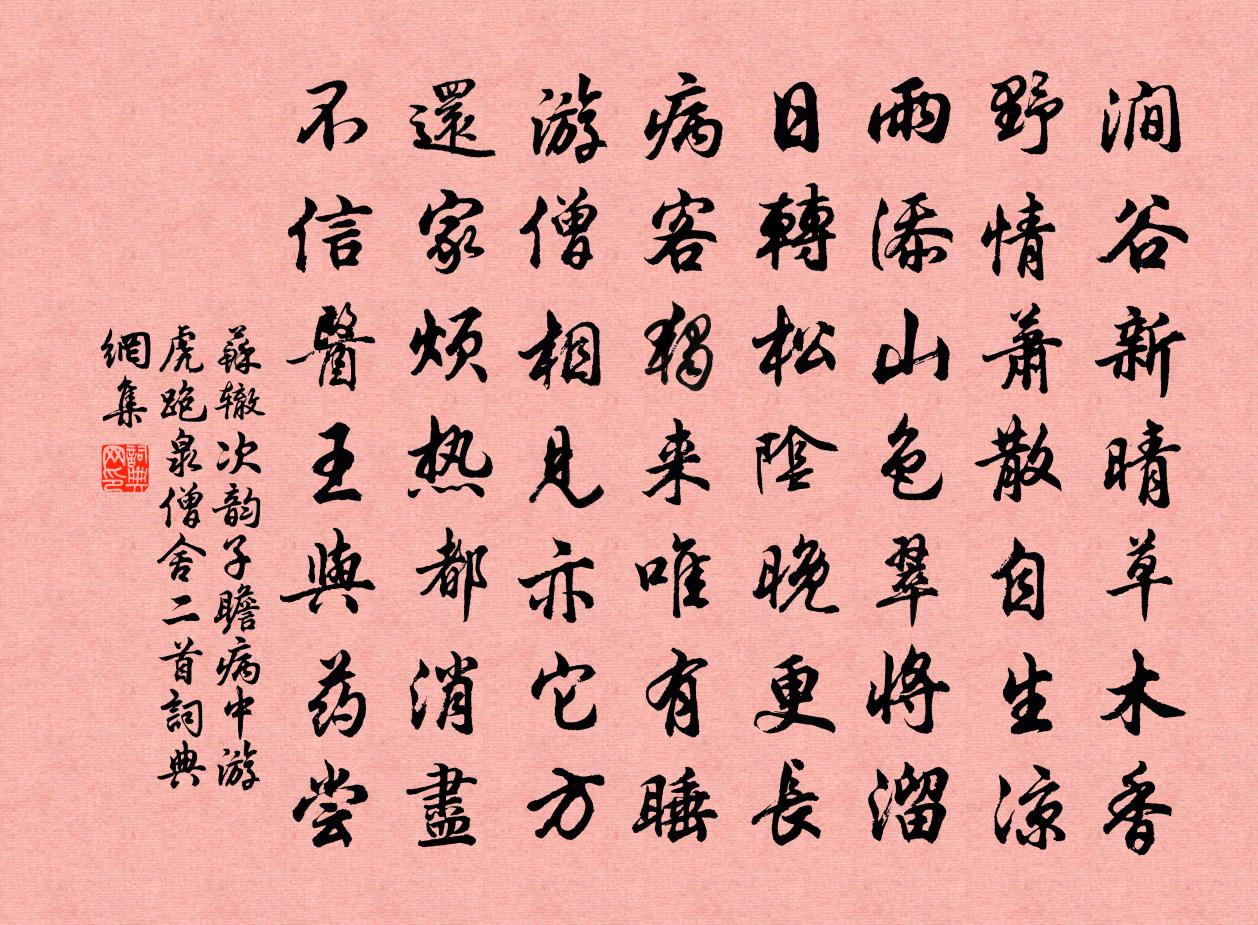 澗谷新晴草木香
野情蕭散自生凉
雨添山色翠將溜
日轉松陰晚更長
病客獨来唯有睡
游僧相見亦它方
還家烦热都消盡
不信醫王與药尝
蘇辙次韵子瞻病中游
虎跑泉僧舍二首詞典
網集
詞典网印